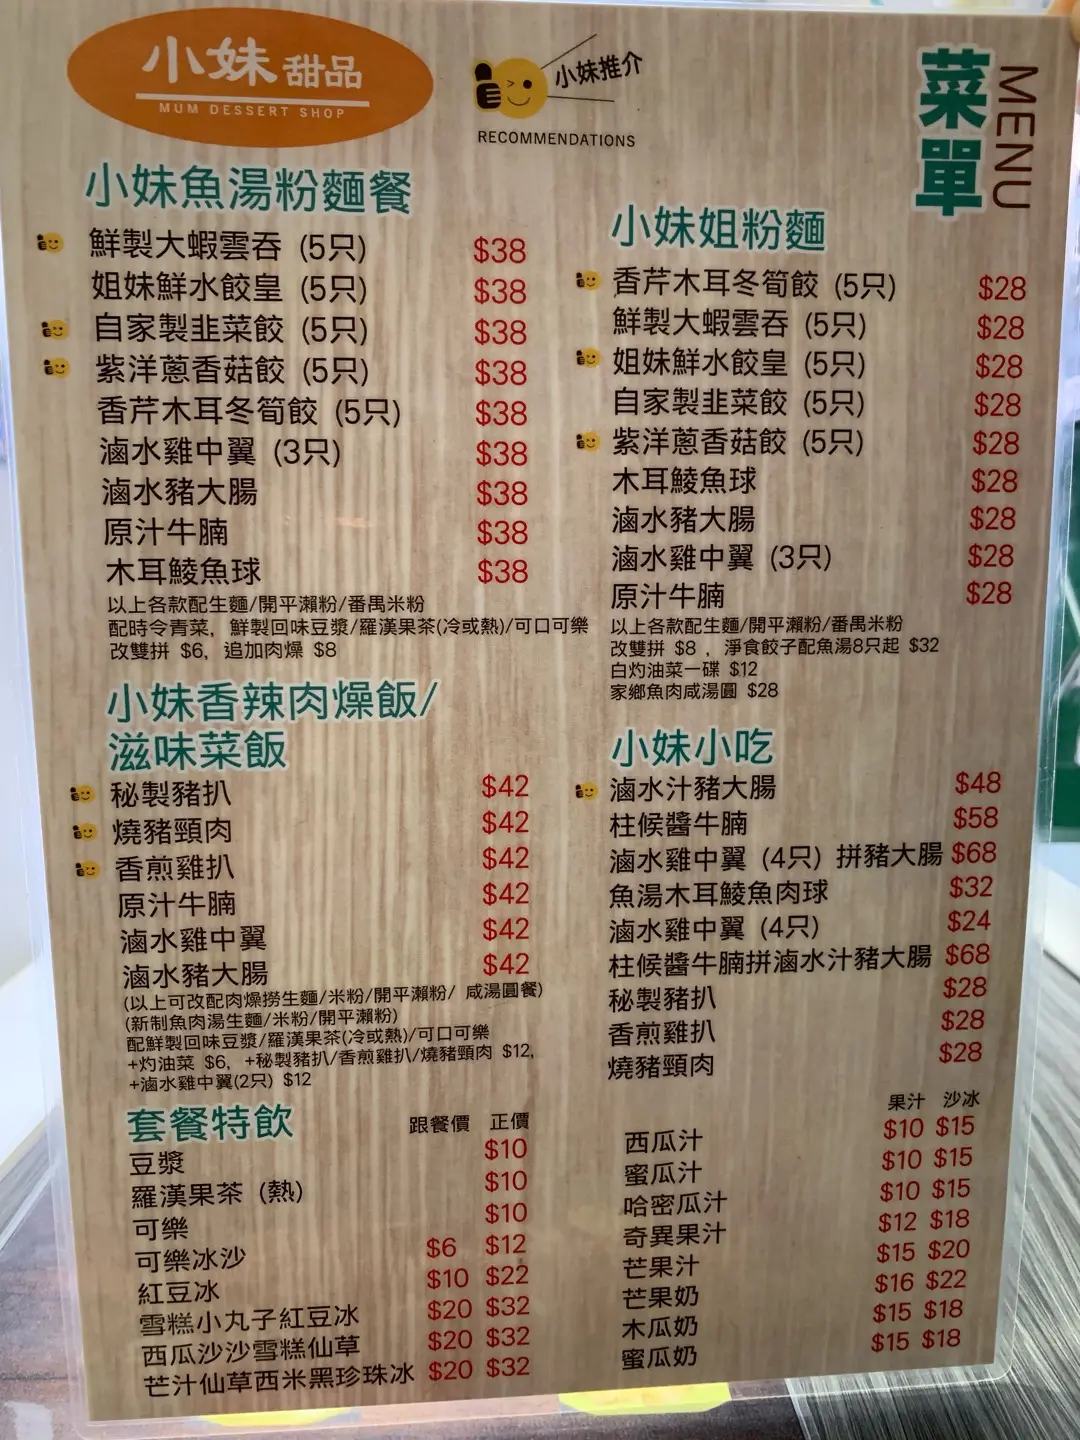 小妹甜品
MUM DESSERT SHOP
小妹推介
RECOMMENDATIONS
菜單
MENU
小妹魚湯粉麵餐
鮮製大蝦雲吞 (5只) $38
姐妹鮮水餃皇 (5只) $38
自家製韭菜餃 (5只) $38
紫洋蔥香菇餃 (5只) $38
香芹木耳冬筍餃 (5只) $38
滷水雞中翼 (3只) $38
滷水豬大腸 $38
原汁牛腩 $38
木耳鯪魚球 $38
以上各款配生麵/開平瀨粉/番禺米粉
配時令青菜, 鮮製回味豆漿/羅漢果茶(冷或熱)/可口可樂
改雙拼 $6, 追加肉燥 $8
小妹姐粉麵
香芹木耳冬筍餃 (5只) $28
鮮製大蝦雲吞 (5只) $28
姐妹鮮水餃皇 (5只) $28
自家製韭菜餃 (5只) $28
紫洋蔥香菇餃 (5只) $28
木耳鯪魚球 $28
滷水豬大腸 $28
滷水雞中翼 (3只) $28
原汁牛腩 $28
以上各款配生麵/開平瀨粉/番禺米粉
改雙拼 $8 , 淨食餃子配魚湯8只起 $32
白灼油菜一碟 $12
家鄉魚肉咸湯圓 $28
小妹香辣肉燥飯/
滋味菜飯
秘製豬扒 $42
燒豬頸肉 $42
香煎雞扒 $42
原汁牛腩 $42
滷水雞中翼 $42
滷水豬大腸 $42
(以上可改配肉燥撈生麵/米粉/開平瀨粉/ 咸湯圓餐)
(新制魚肉湯生麵/米粉/開平瀨粉)
配鮮製回味豆漿/羅漢果茶(冷或熱)/可口可樂
+灼油菜 $6, +秘製豬扒/香煎雞扒/燒豬頸肉 $12,
+滷水雞中翼(2只) $12
小妹小吃
滷水汁豬大腸 $48
柱候醬牛腩 $58
滷水雞中翼 (4只) 拼豬大腸 $68
魚湯木耳鯪魚肉球 $32
滷水雞中翼 (4只) $24
柱候醬牛腩拼滷水汁豬大腸 $68
秘製豬扒 $28
香煎雞扒 $28
燒豬頸肉 $28
套餐特飲 跟餐價 正價
豆漿 $10
羅漢果茶 (熱) $10
可樂 $10
可樂冰沙 $6 $12
紅豆冰 $10 $22
雪糕小丸子紅豆冰 $20 $32
西瓜沙沙雪糕仙草 $20 $32
芒汁仙草西米黑珍珠冰 $20 $32
果汁 沙冰
西瓜汁 $10 $15
蜜瓜汁 $10 $15
哈密瓜汁 $10 $15
奇異果汁 $12 $18
芒果汁 $15 $20
芒果奶 $16 $22
木瓜奶 $15 $18
蜜瓜奶 $15 $18